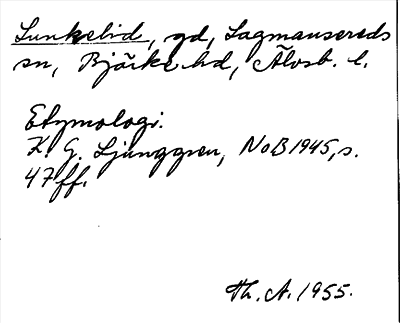 Lunkelid, gd, Lagmansereds
sn, Bjärke hd, Älvsb. l.
Etymologi.
K. G. Ljunggren, NoB 1945, s.
47 ff.
Th. A. 1955.